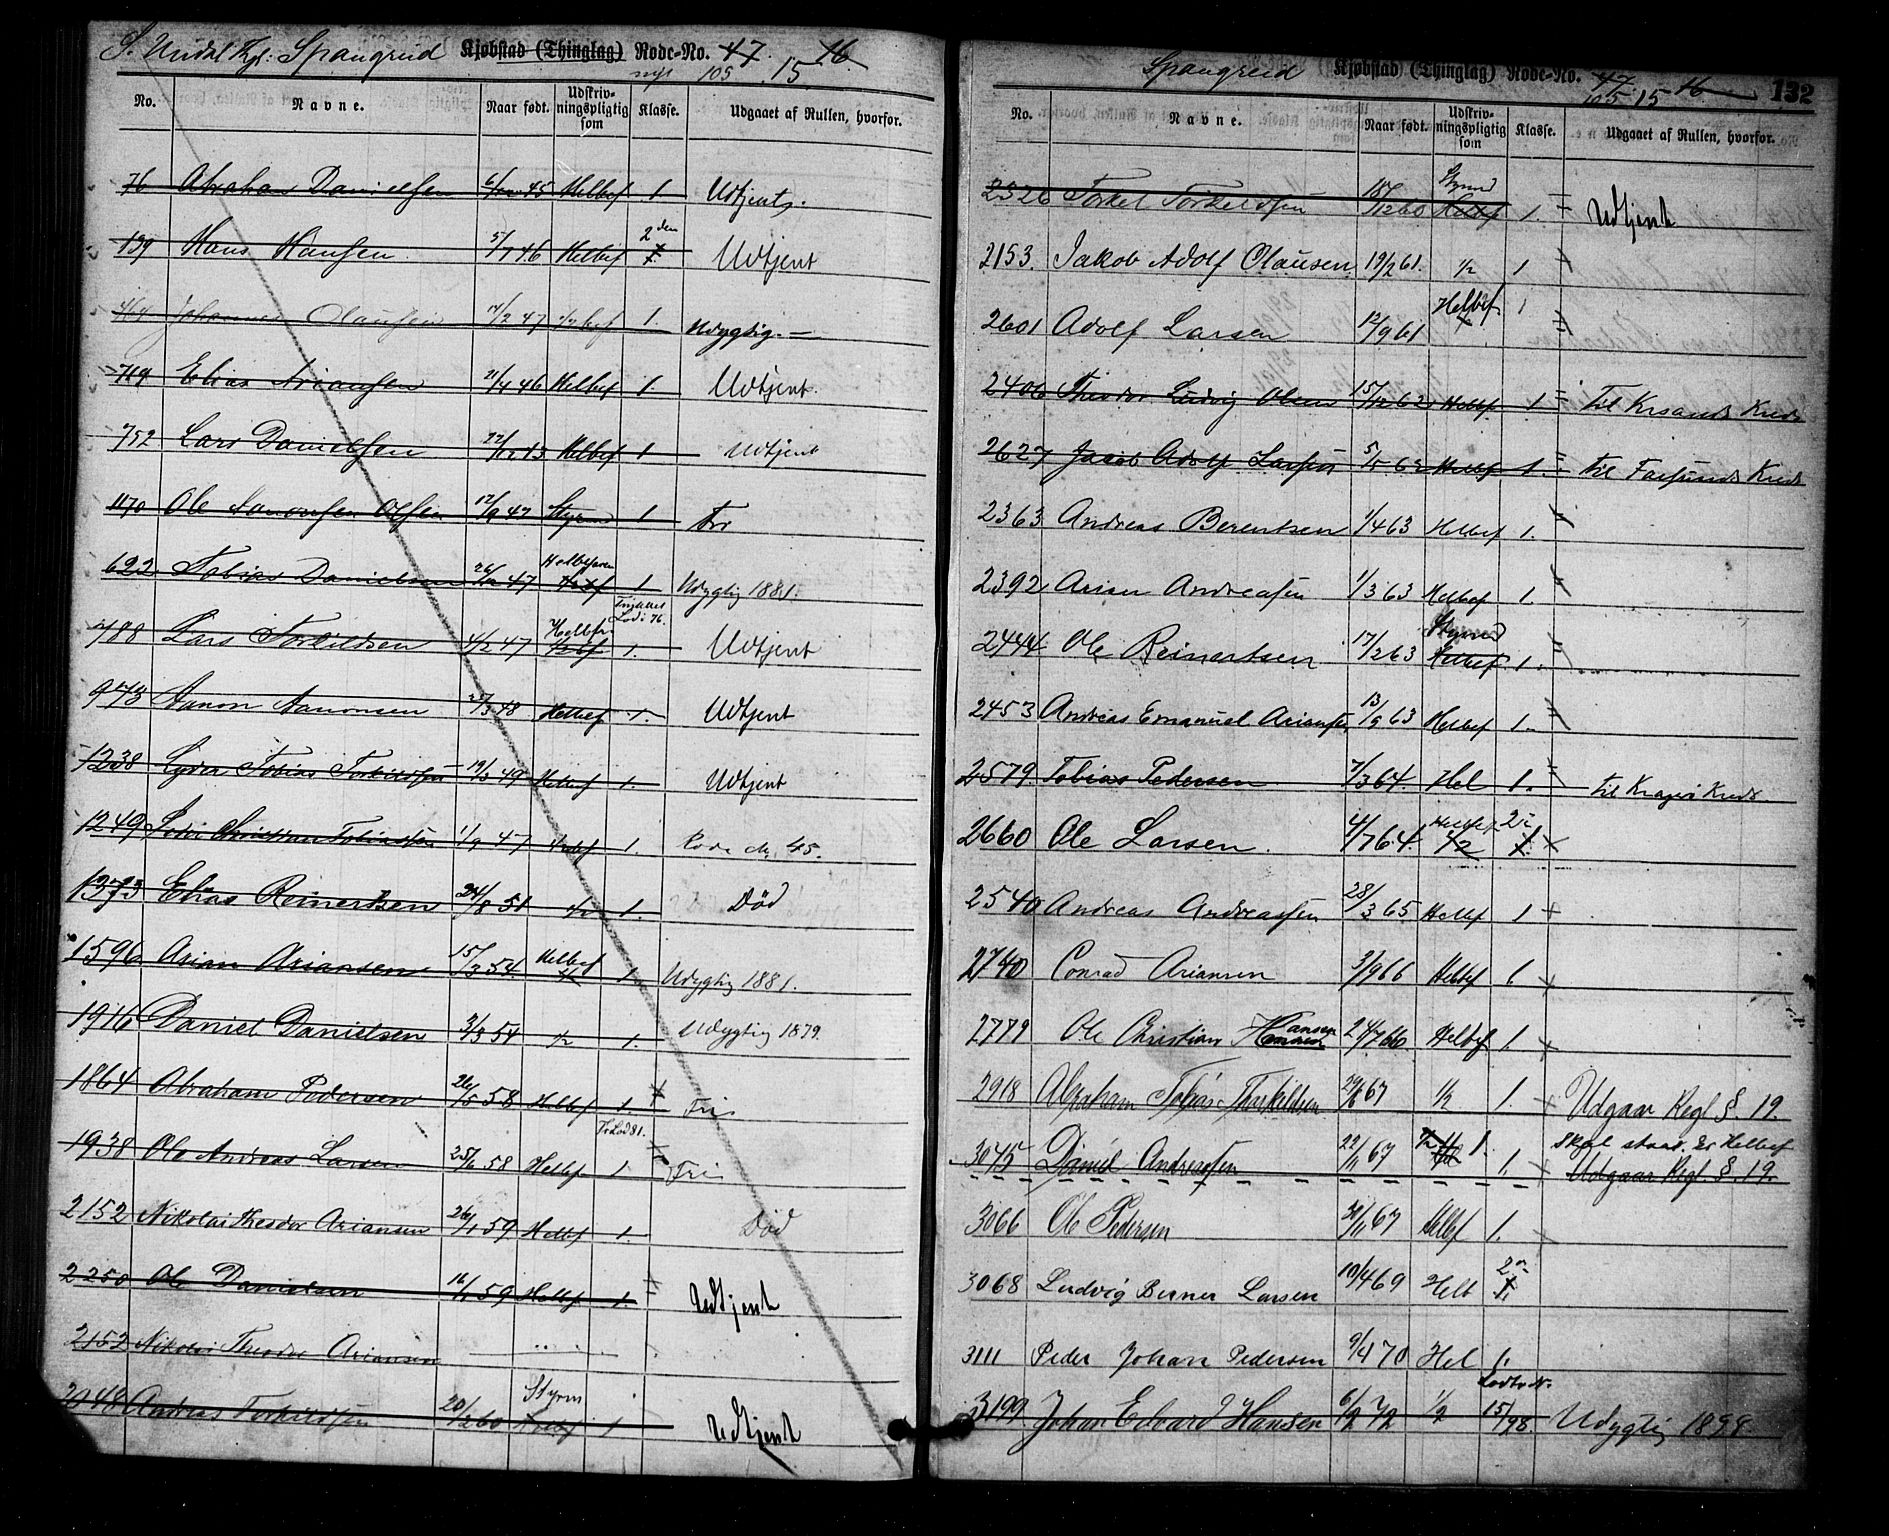 S. Undal Kgl: Spangreid Kjøbstad (Thinglag) Rode-No. 47. 16
nyt 105 15
No. Navne. Naar født. Udskriv-ningspligtig som Klasse. Udgaaet af Rullen, hvorfor.
76 Abraham Danielsen 45 Helbef 1 Udtjent.
139 Hans Hansen 5/7 46 Helbef 2den 1 Udtjent
464 Johannes Olausen 47 1/2 bef 1. Udygtig.
719 Elias Ariansen 21/4 46 Helbef 1. Udtjent.
752 Lars Danielsen 43 Helbef 1 Udtjent
1170 Ole Aanonsen Olsen 12/9 47 Styrm 1
622 Tobias Danielsen 47 Helbefaren 1 Udygtig 1881.
Trukket Lod i 76.
788 Lars Torkildsen 4/2 47 Helbef 1. Udtjent
973 Aanon Aanonsen 48 Helbef 1. Udtjent
1238 Lyder Tobias Torkildsen 19/3 49 Helbef 1. Udtjent
1249 Christian Tobiassen 1/9 47 1. Rode No. 45.
1373 Elias Reinertsen 24/8 51 1/2 1. Død
1596 Arian Ariansen 15/3 54 Helbef 1. Udygtig 1881.
1916 Daniel Danielsen 3/3 54 1/2 1. Udygtig 1879.
1864 Abraham Pedersen 26/5 58 Helbef 1 Fri
Fr Lod 81.
1938 Ole Andreas Larsen 25/6 58 Helbef 1 Fri
2152 Nikolai Theodor Ariansen 26/1 59 Helbef 1. Død
2250 Ole Danielsen 16/1 59 Helbef 1. Udtjent
2152 Nikolai Theodor Ariansen
2048 Andreas Torkildsen 20/2 60 Styrm 1 Udtjent
Spangreid Kjøbstad (Thinglag) Rode-No. 47. 16 132
105 15
No. Navne. Naar født. Udskriv-ningspligtig som Klasse. Udgaaet af Rullen, hvorfor.
2326 Torkel Torkeldsen 18/12 60 Styrmd Helbef 1. Udtjent
2153. Jakob Adolf Olausen 19/2 61. 1/2 1
2601 Adolf Larsen 12/9 61 Helbef 1
2406 Theodor Ludvig Olsen 15/12 62 Helbef 1 Til Krsands Kreds
2627 Jacob Adolf Larsen 5/5 62 Helbef 1. Til Farsunds Kreds
2363 Andreas Berentsen 1/4 63 Helbef 1.
2392 Arian Andreasen 1/3 63 Helbef 1.
2444 Ole Reinertsen 17/2 63 Styrmd Helbef 1.
2453 Andreas Emanuel Ariansen 13/9 63 Helbef 1.
2579. Tobias Pedersen 7/3 64. Hel 1. Til Kragerø Kreds.
2660 Ole Larsen. 4/7 64 Helbef 1/2 2 1.
2540 Andreas Andreassen 28/3 65 Helbf 1
2740 Conrad Ariansen 3/9 66 Helbf 1
2779 Ole Christian Hansen 24/7 66. Helbef 1
2918 Abraham Tobias Thorkildsen 67 1/2 1. Udgaar Regl §. 19.
Skal staa, Er Helbef
3045 Daniel Andreassen 22/11 67 1/2 1. Udgaar Regl. §. 19.
3066 Ole Pedersen 30/11 67 Helbf 1.
3068 Ludvig Berner Larsen 19/4 69 Helb 2 1.
3111 Peder Johan Pedersen 9/4 70 Hel 1.
Lodtr N.
3199 Johan Edvard Hansen 6/2 72 1/2 15/98. Udygtig 1898